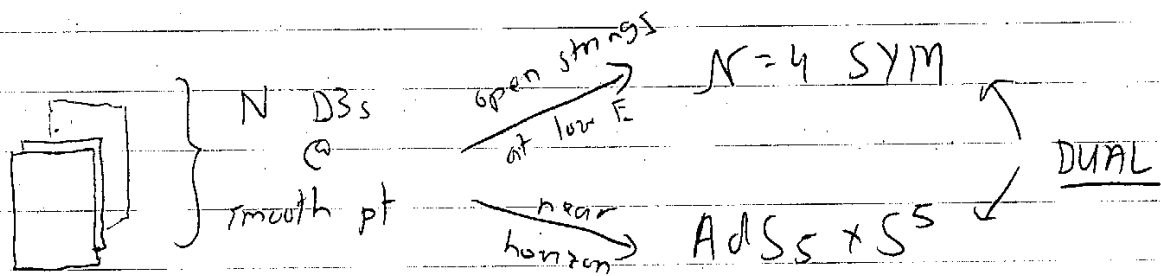 N D3s
@
smooth pt
open strings
at low E
N=4 SYM
near
horizon
AdS5 × S^5
DUAL